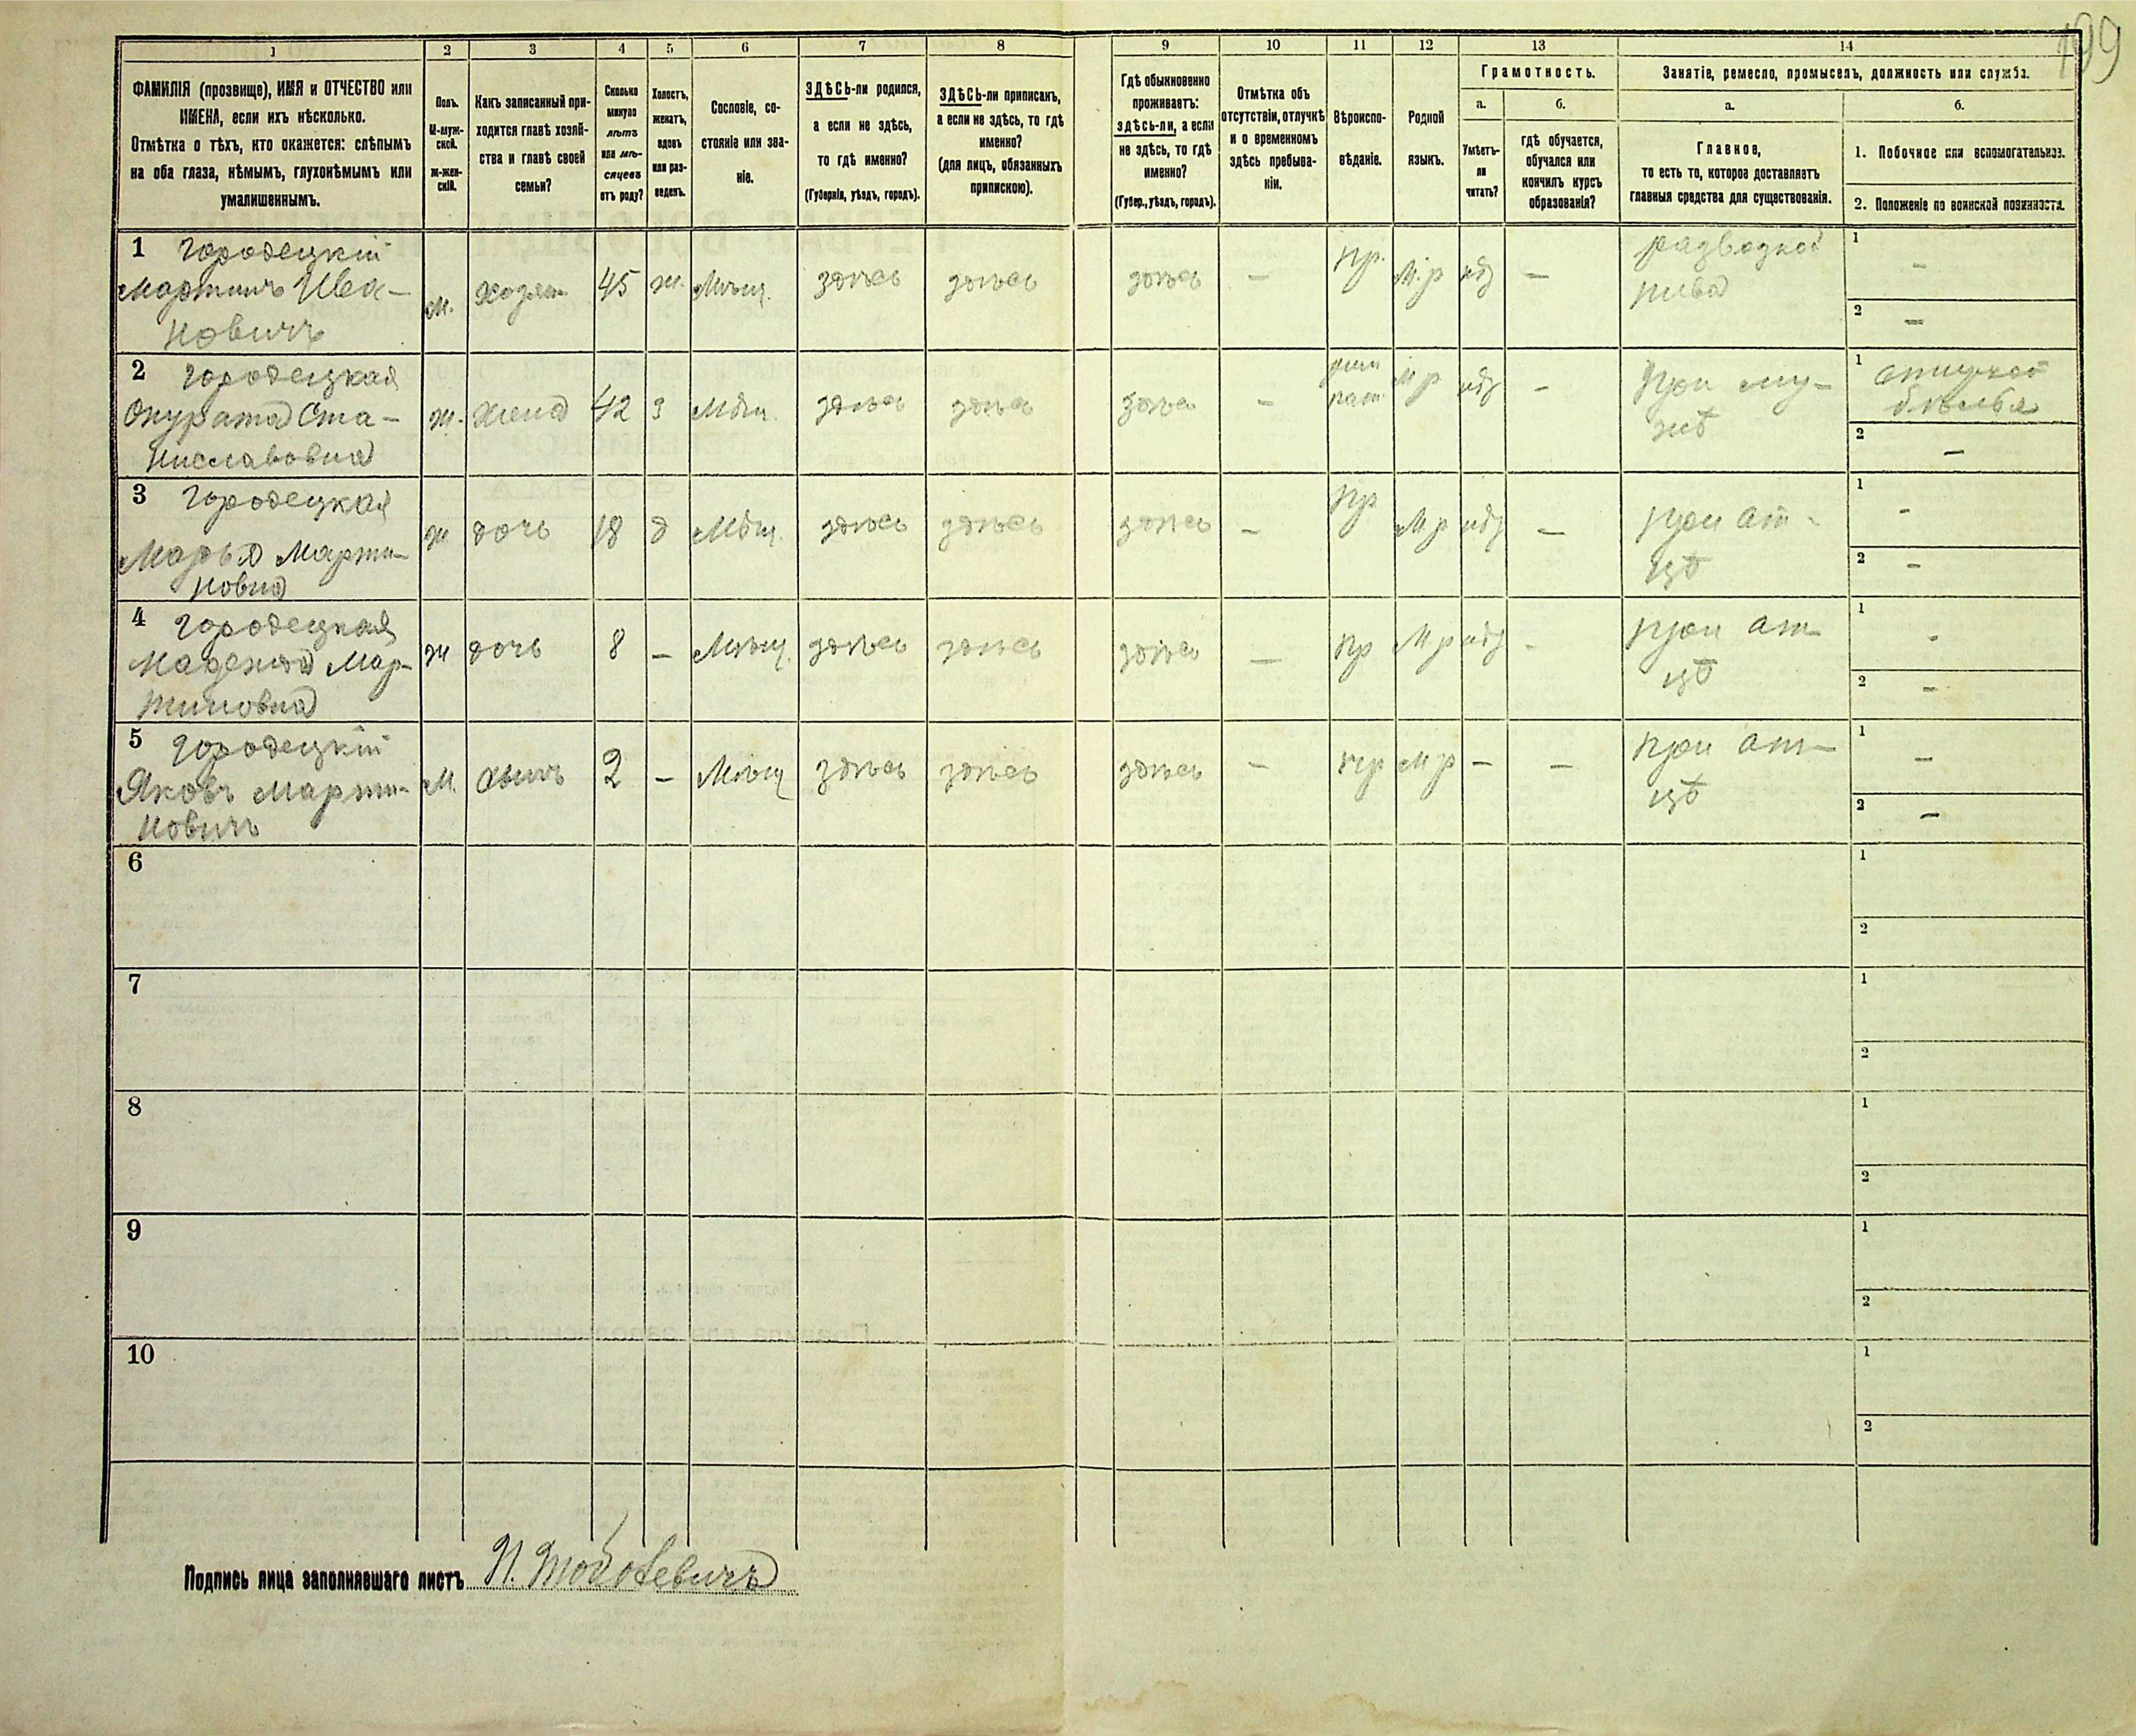 199
1 2 3 4 5 6 7 8 9 10 11 12 13 14
ФАМИЛІЯ (прозвище), ИМЯ и ОТЧЕСТВО или
ИМЕНА, если ихъ нѣсколько.
Отмѣтка о тѣхъ, кто окажется: слѣпымъ
на оба глаза, нѣмымъ, глухонѣмымъ или
умалишеннымъ.
Полъ.
М-муж-
ской.
ж-жен-
скій.
Какъ записанный при-
ходится главѣ хозяй-
ства и главѣ своей
семьи?
Сколько
минуло
лѣтъ
или мѣ-
сяцевъ
отъ роду?
Холостъ,
женатъ,
вдовъ
или раз-
веденъ.
Сословіе, со-
стояніе или зва-
ніе.
ЗДѢСЬ-ли родился,
а если не здѣсь,
то гдѣ именно?
(Губернія, уѣздъ, городъ).
ЗДѢСЬ-ли приписанъ,
а если не здѣсь, то гдѣ
именно?
(для лицъ, обязанныхъ
припискою).
Гдѣ обыкновенно
проживаетъ:
здѣсь-ли, а если
не здѣсь, то гдѣ
именно?
(Губер., уѣздъ, городъ).
Отмѣтка объ
отсутствіи, отлучкѣ
и о временномъ
здѣсь пребыва-
ніи.
Вѣроиспо-
вѣданіе.
Родной
языкъ.
Грамотность.
а.
Умѣетъ-
ли
читать?
б.
гдѣ обучается,
обучался или
кончилъ курсъ
образованія?
Занятіе, ремесло, промыселъ, должность или служба.
а.
Главное,
то есть то, которое доставляетъ
главныя средства для существованія.
б.
1. Побочное или вспомогательное.
2. Положеніе по воинской повинности.
1 Городецкій
Мартинъ Ива-
новичъ
м. хозяин 45 ж. Мѣщ. здѣсь здѣсь здѣсь — пр. М.р —
развозкой
пива
1 -
2 —
2 Городецкая
Ста-
ниславовна
ж. жена 42 з Мѣщ. здѣсь здѣсь здѣсь — рим М р —
кат.
при му-
жѣ
1
бѣлья
2 —
3 Городецкая
Марья Марти-
новна
ж дочь 18 д Мѣщ. здѣсь здѣсь здѣсь — пр М р —
при от-
цѣ
1 -
2 -
4 Городецкая
Мар-
тиновна
ж дочь 8 — Мѣщ. здѣсь здѣсь здѣсь — пр М р -
при от-
цѣ
1 -
2 —
5 Городецкій
Яковъ Марти-
новичъ
М. сынъ 2 — Мѣщ здѣсь здѣсь здѣсь — пр М р — —
при от-
цѣ
1 —
2 —
6
1
2
7
1
2
8
1
2
9
1
2
10
1
2
Подпись лица заполнявшаго листъ